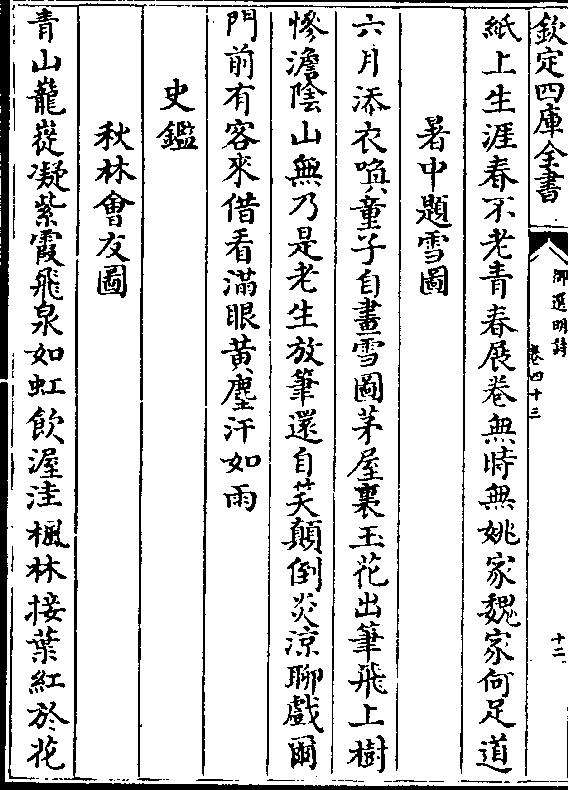 欽定四庫全書
御選明詩
卷四十三
十二
紙上生涯春不老青春展卷無時無姚家魏家何足道
暑中題雪圖
六月添衣喚童子自畫雪圖茅屋裏玉花出筆飛上樹
慘澹陰山無乃是老生放筆還自笑顛倒炎涼聊戲爾
門前有客來借看滿眼黃塵汗如雨
史鑑
秋林會友圖
青山巃嵸凝紫霞飛泉如虹飲渥洼楓林接葉紅於花